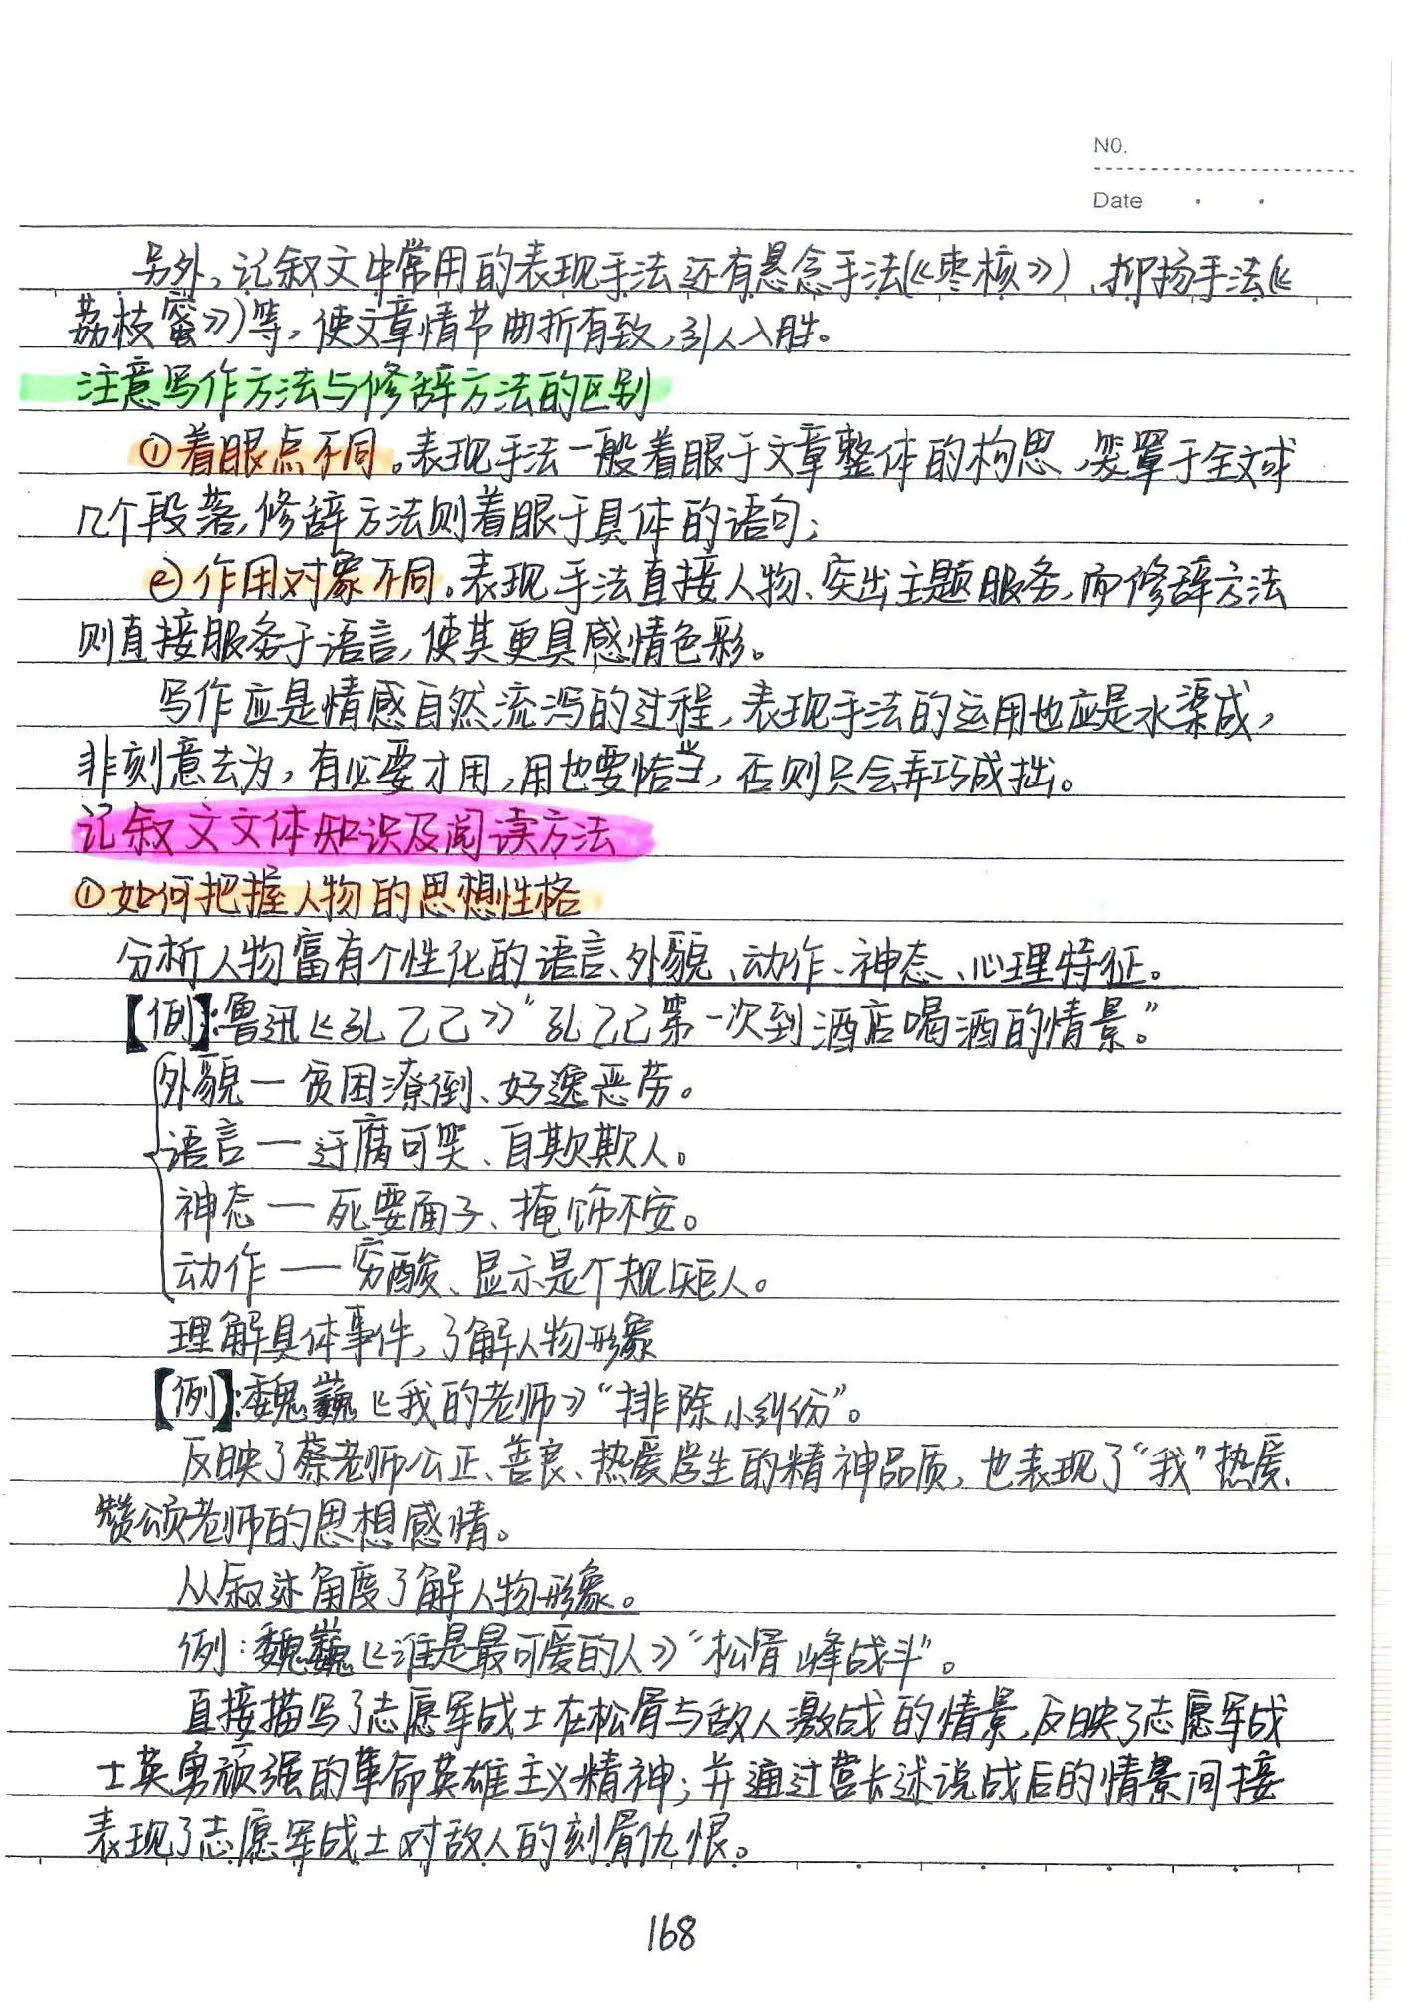 NO.
Date
另外,记叙文中常用的表现手法还有悬念手法(《枣核》)、抑扬手法(《
荔枝蜜》)等,使文章情节曲折有致,引人入胜。
注意写作方法与修辞方法的区别
①着眼点不同。表现手法一般着眼于文章整体的构思,笼罩于全文或
几个段落,修辞方法则着眼于具体的语句;
②作用对象不同。表现手法直接人物、突出主题服务,而修辞方法
则直接服务于语言,使其更具感情色彩。
写作应是情感自然流泻的过程,表现手法的运用也应是水渠成,
非刻意去为,有必要才用,用也要恰当,否则只会弄巧成拙。
记叙文文体知识及阅读方法
①如何把握人物的思想性格
分析人物富有个性化的语言、外貌、动作、神态、心理特征。
【例】:鲁迅《孔乙己》“孔乙己第一次到酒店喝酒的情景。”
外貌—贫困潦倒、好逸恶劳。
语言—迂腐可笑、自欺欺人。
神态—死要面子、掩饰不安。
动作—穷酸、显示是个规矩人。
理解具体事件,了解人物形象
【例】:魏巍《我的老师》“排除小纠纷”。
反映了蔡老师公正、善良、热爱学生的精神品质,也表现了“我”热爱、
赞颂老师的思想感情。
从叙述角度了解人物形象。
例:魏巍《谁是最可爱的人》“松骨峰战斗”。
直接描写了志愿军战士在松骨与敌人激战的情景,反映了志愿军战
士英勇顽强的革命英雄主义精神;并通过营长述说战后的情景间接
表现了志愿军战士对敌人的刻骨仇恨。
168